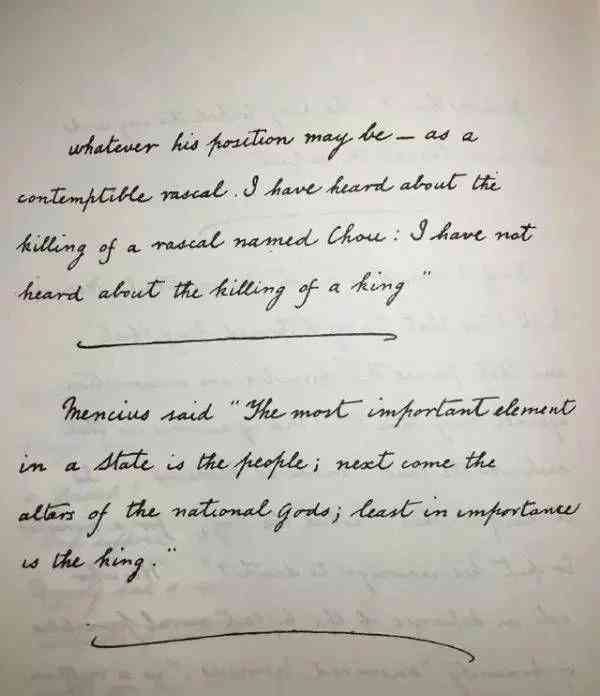 whatever his position may be – as a
contemptible rascal. I have heard about the
killing of a rascal named Chou: I have not
heard about the killing of a king"
Mencius said "The most important element
in a State is the people; next come the
altars of the national Gods; least in importance
is the king."